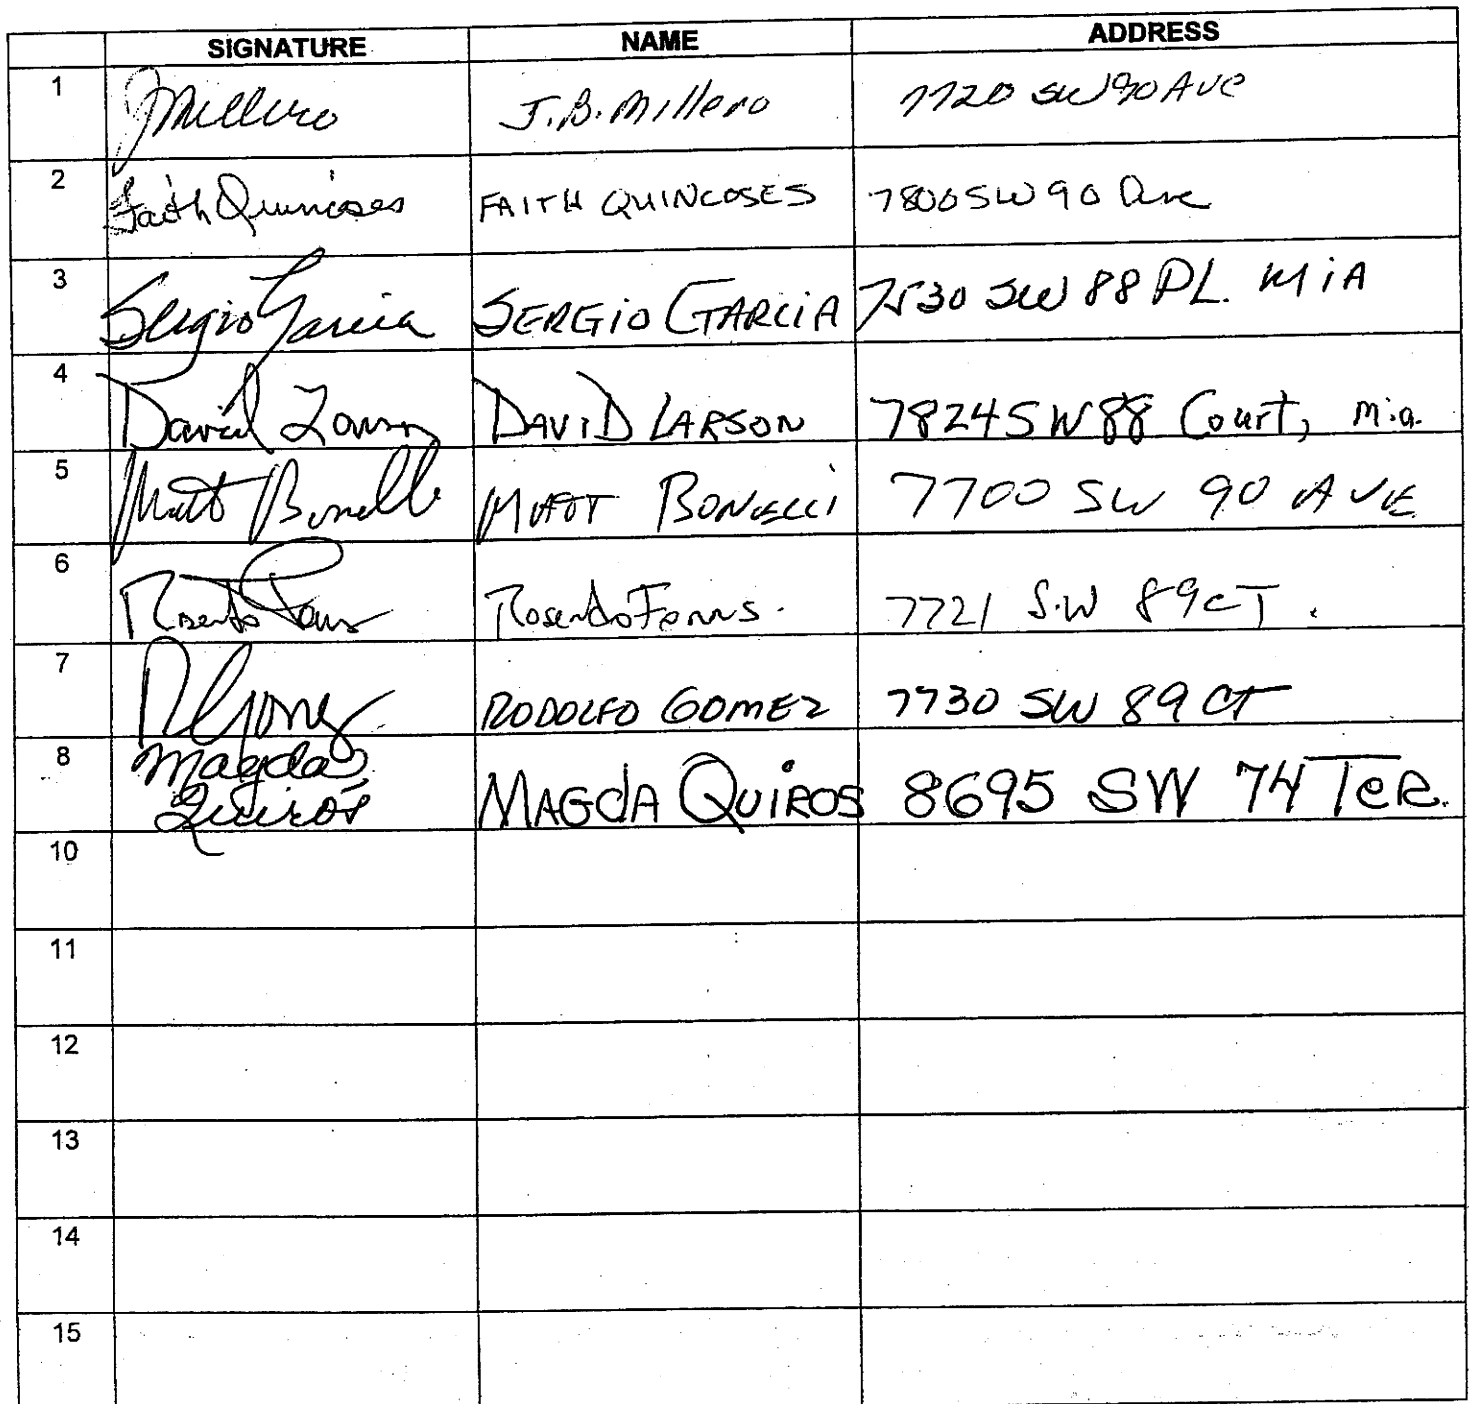 SIGNATURE NAME ADDRESS
1 JMillero J.B. Millero 7720 SW 90 AVE
2 Faith Quincoses FAITH QUINCOSES 7800 SW 90 Ave
3 Sergio Garcia SERGiO GARCiA 7530 SW 88 PL. MiA
4 David Larson DAViD LARSON 7824 SW 88 Court, Mia.
5 Matt Bonelli MATT BONELLI 7700 SW 90 AVE
6 Rosendo 7721 S.W 89 CT.
7 RGomez RODOLFO GOMEZ 7730 SW 89 CT
8 Magda
Quirós MAGdA QUiROS 8695 SW 74 TeR.
10
11
12
13
14
15